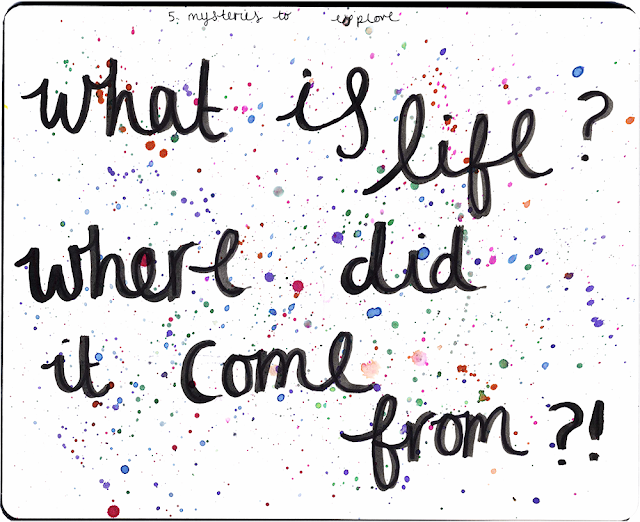 5. mysteries to explore
what is life?
where did
it come
from?!